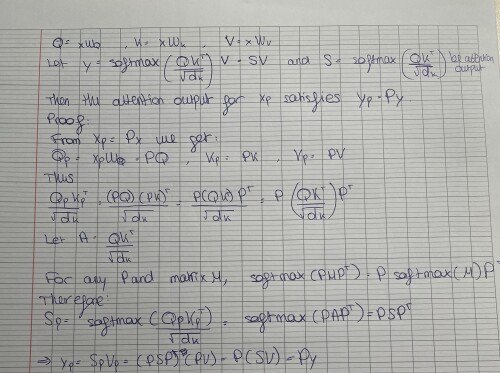 Q = xWQ , K = xWk , V = xWv
Let y = softmax(QK^T/√dk) V = SV and S = softmax(QK^T/√dk) be attention output
Then the attention output for xp satisfies yp = Py.
Proof:
From xp = Px we get:
Qp = xpWQ = PQ , Kp = PK , Vp = PV
Thus
QpKp^T/√dk = (PQ)(PK)^T/√dk = P(QK)P^T/√dk = P(QK^T/√dk)P^T
Let A = QK^T/√dk
For any P and matrix M, softmax(PMP^T) = P softmax(M) P^T
Therefore:
Sp = softmax(QpKp^T/√dk) = softmax(PAP^T) = PSP^T
⇒ yp = SpVp = (PSP^T)(PV) = P(SV) = Py